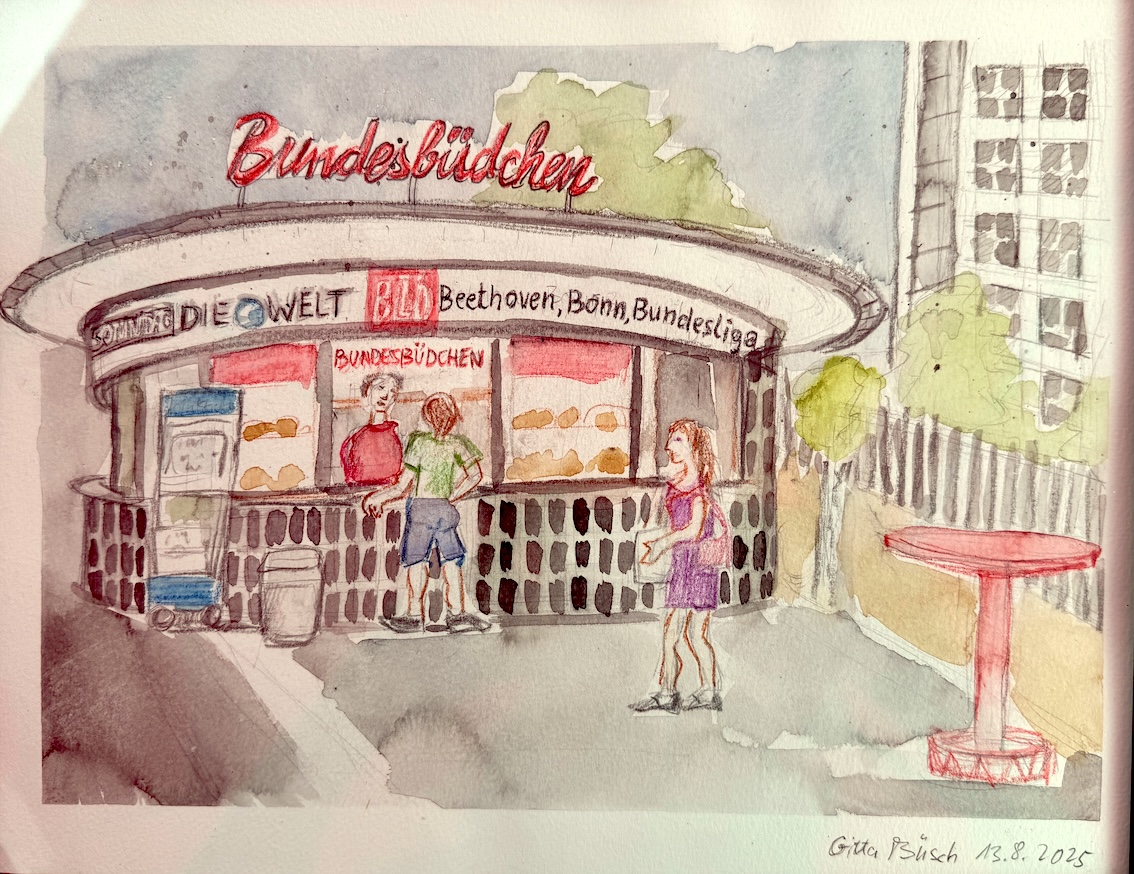 Bundesbüdchen
SONNTAG DIE WELT BILD Beethoven, Bonn, Bundesliga
BUNDESBÜDCHEN
Gitta Büsch 13.8.2025